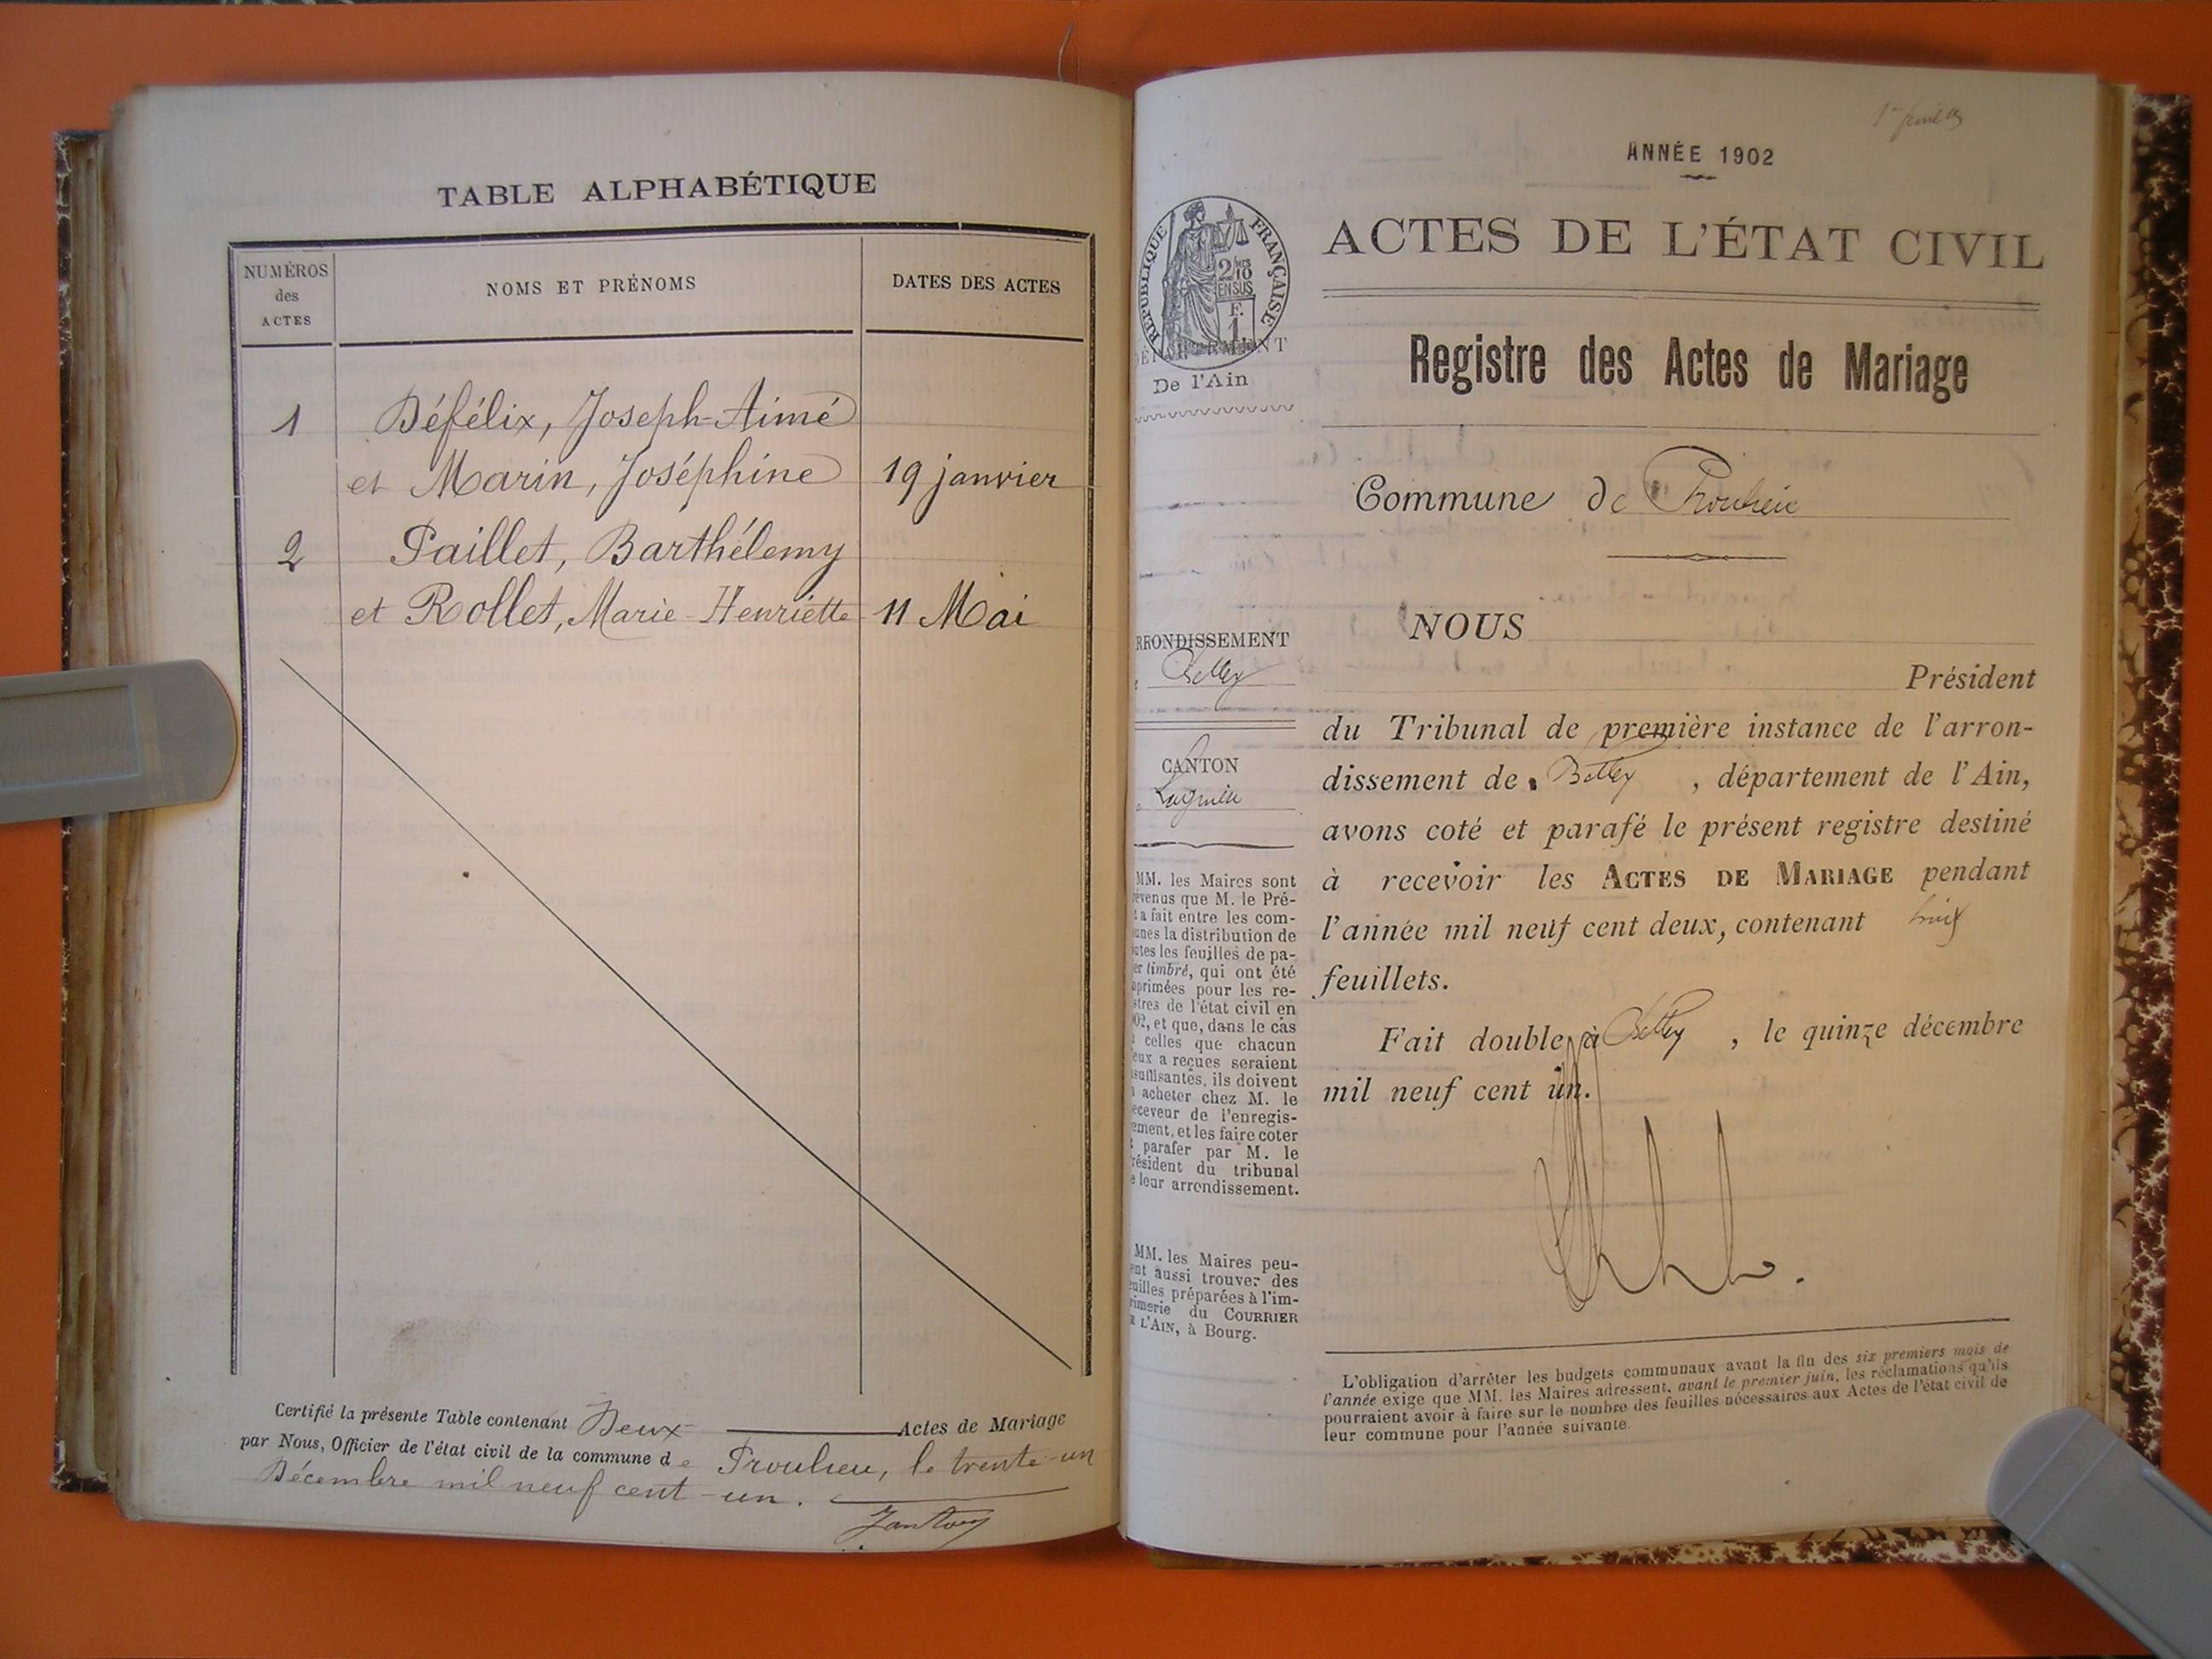 TABLE ALPHABÉTIQUE
NUMÉROS
des
ACTES
NOMS ET PRÉNOMS
DATES DES ACTES
1 Défélix, Joseph-Aimé
et Marin, Joséphine 19 janvier
2 Paillet, Barthélemy
et Rollet, Marie-Henriette 11 Mai
Certifié la présente Table contenant Deux Actes de Mariage
par Nous, Officier de l'état civil de la commune de Proulieu, le trente-un
Décembre mil neuf cent-un.
ANNÉE 1902
RÉPUBLIQUE FRANÇAISE
2/10
EN SUS
F.
1
DÉPARTEMENT
De l'Ain
ACTES DE L'ÉTAT CIVIL
Registre des Actes de Mariage
Commune de Proulieu
RRONDISSEMENT
Belley
CANTON
Lagnieu
MM. les Maires sont
évenus que M. le Pré-
t a fait entre les com-
unes la distribution de
utes les feuilles de pa-
er timbré, qui ont été
primées pour les re-
stres de l'état civil en
02, et que, dans le cas
celles que chacun
eux a reçues seraient
suffisantes, ils doivent
acheter chez M. le
eceveur de l'enregis-
ement, et les faire coter
parafer par M. le
résident du tribunal
e leur arrondissement.
MM. les Maires peu-
ent aussi trouver des
uilles préparées à l'im-
rimerie du COURRIER
L'AIN, à Bourg.
NOUS
Président
du Tribunal de première instance de l'arron-
dissement de Belley, département de l'Ain,
avons coté et parafé le présent registre destiné
à recevoir les ACTES DE MARIAGE pendant
l'année mil neuf cent deux, contenant
feuillets.
Fait double à Belley, le quinze décembre
mil neuf cent un.
L'obligation d'arrêter les budgets communaux avant la fin des six premiers mois de
l'année exige que MM. les Maires adressent, avant le premier juin, les réclamations qu'ils
pourraient avoir à faire sur le nombre des feuilles nécessaires aux Actes de l'état civil de
leur commune pour l'année suivante.